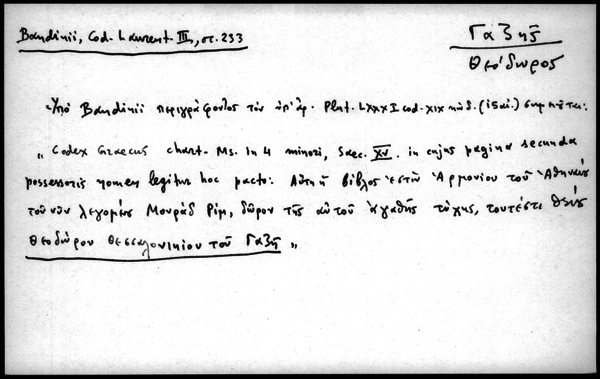 Bandinii, Cod. Laurent. III, στ. 233
Γαζῆς
Θεόδωρος
Ὑπὸ Bandinii περιγράφοντος τὸν ὑπ' ἀρ. Plut. LXXXI cod. XIX κώδ. (ις αἰ.) σημειοῦται:
„ Codex Graecus chart. Ms. in 4 minori, Saec. XV. in cujus pagina secunda
possessoris nomen legitur hoc pacto: Αὕτη ἡ βίβλος ἐστὶν Ἁρμονίου τοῦ Ἀθηναίου
τοῦ νῦν λεγομένου Μουράδ Ρίμ, δῶρον τῆς αὐτοῦ ἀγαθῆς τύχης, τουτέστι
Θεοδώρου Θεσσαλονικίου τοῦ Γαζῆ „